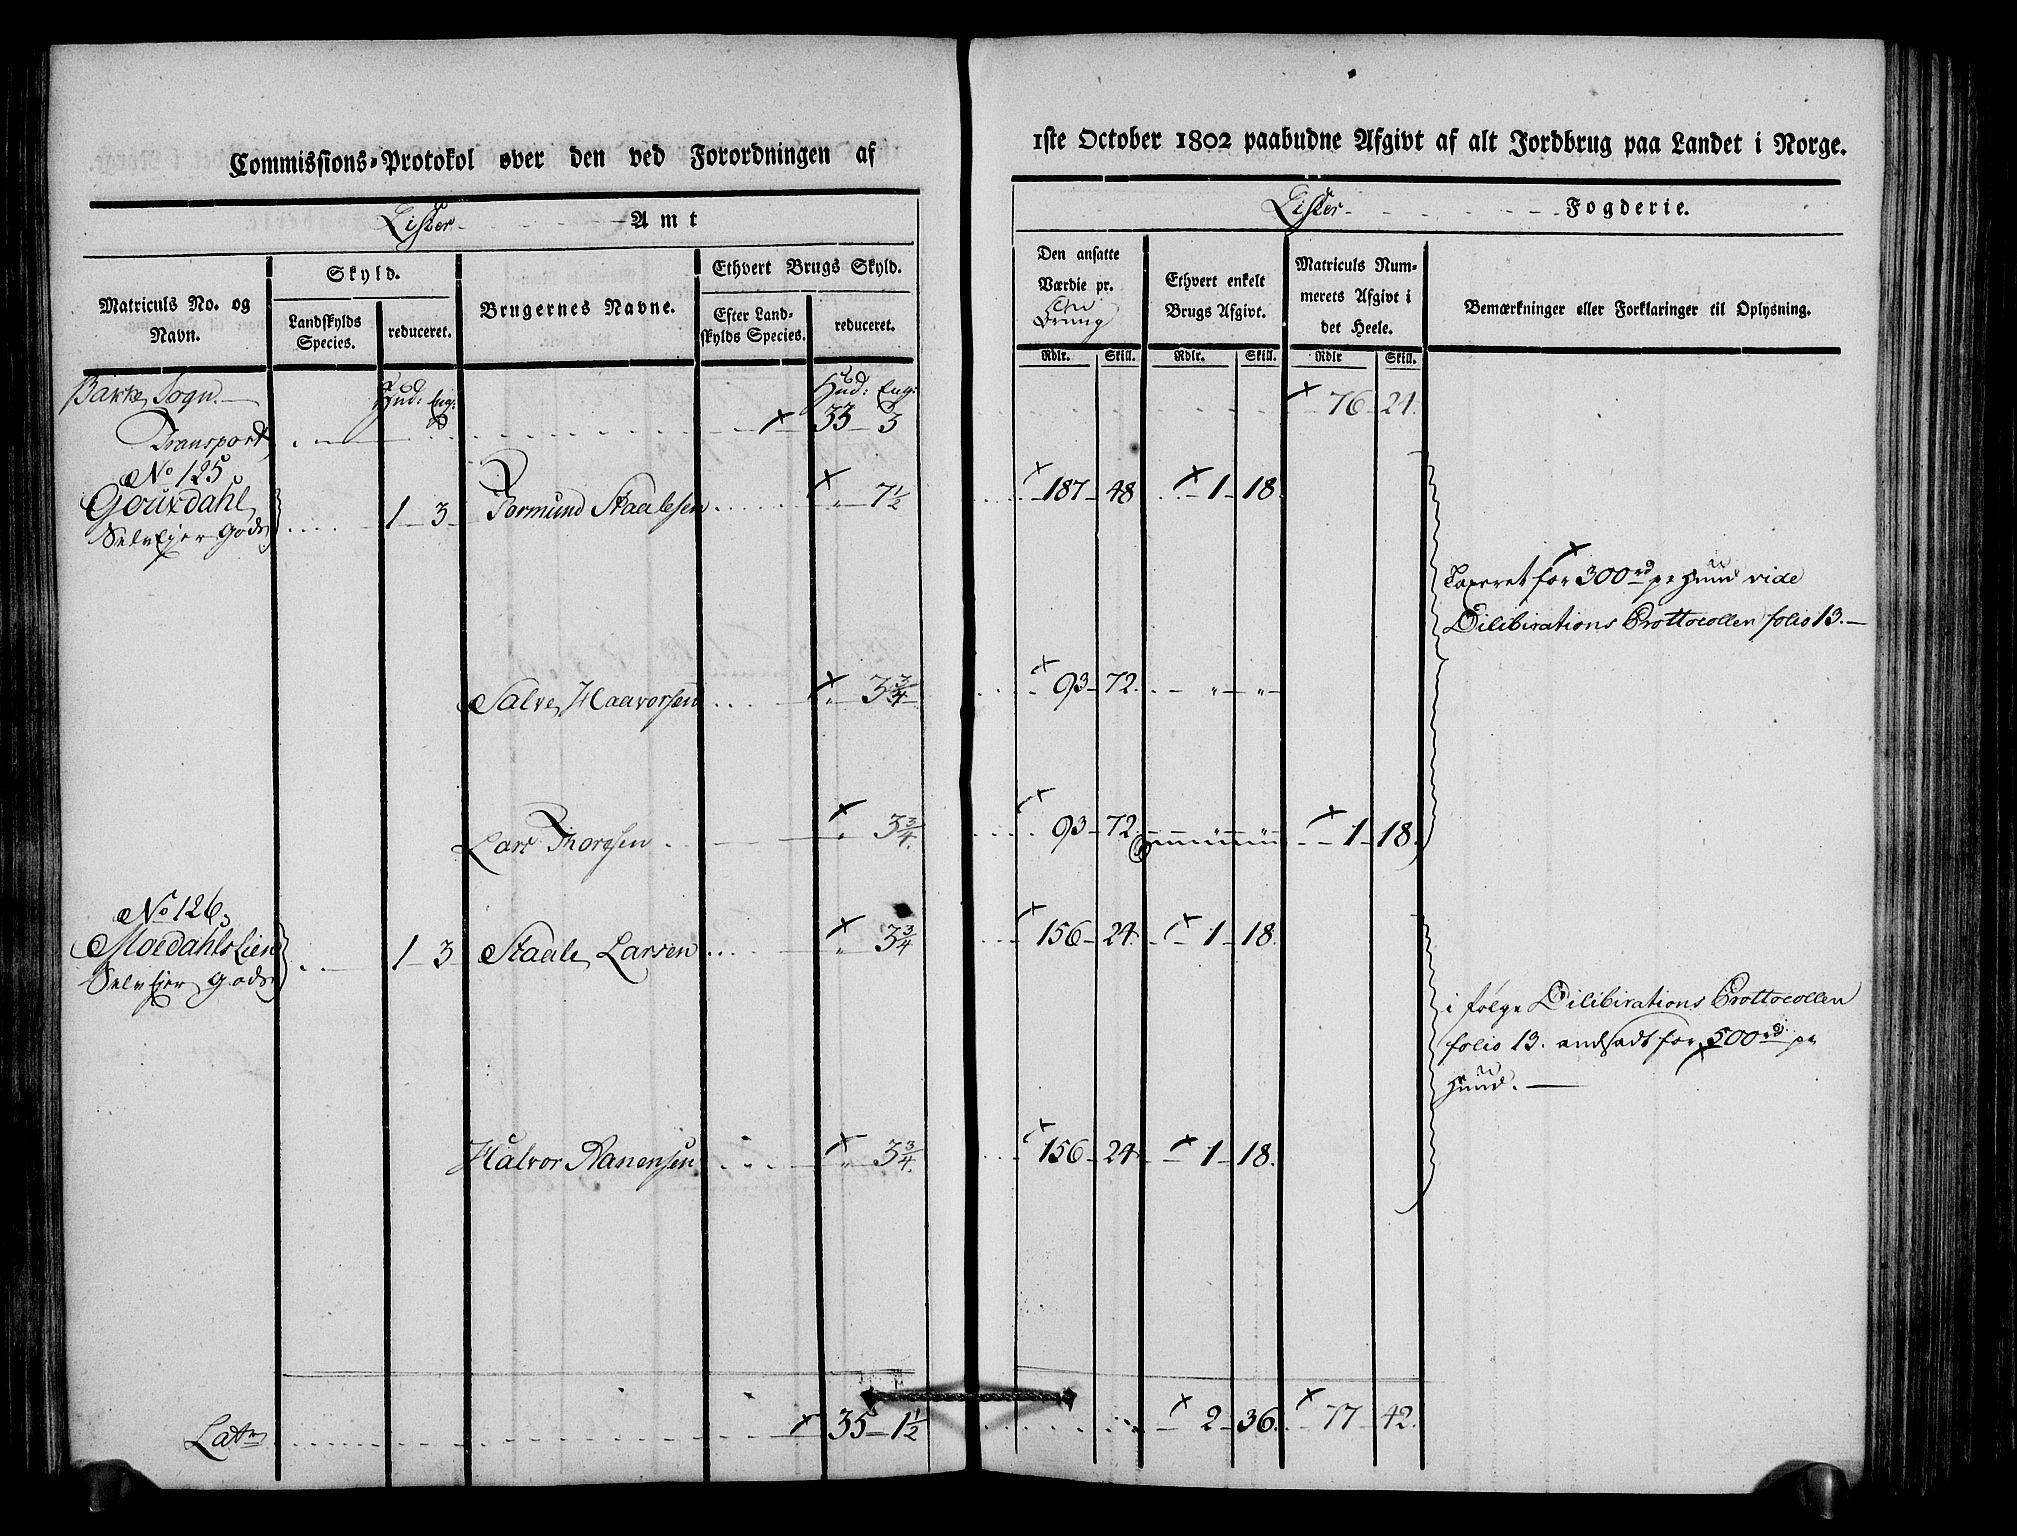 Commissions-Protokol over den ved Forordningen af
1ste October 1802 paabudne Afgivt af alt Jordbrug paa Landet i Norge.
Lister Amt
Lister Fogderie.
Matriculs No. og Navn.
Skyld.
Landskylds Species.
reduceret.
Brugernes Navne.
Ethvert Brugs Skyld.
Efter Landskylds Species.
reduceret.
Den ansatte Værdie pr.
Ethvert enkelt Brugs Afgivt.
Matriculs Nummerets Afgivt i det Heele.
Bemærkninger eller Forklaringer til Oplysning.
Rdlr. Skill. Rdlr. Skill. Rdlr Skill.
Bakke Sogn. Hud: Eng: Hud: Eng:
Transport 33 3 76 24
No 125
1 3 Tormund Staalesen " 7½ 187 48 1 18
Selvejer Gods
Taxeret for 300rd pr Huud vide
Dilibirations Prottocollen folio 13.
Salve Haavorsen " 3¾ 93 72 " "
Lars Thorsen " 3¾ 93 72 " " 1 18.
No 126
Moedahls Lien 1 3 Staale Larsen " 3¾ 156 24 1 18
Selvejer Gods
i følge Dilibirations Prottocollen
folio 13. andsadt for 500rd pr
Huud.
Halvor " 3¾ 156 24 1 18.
Latr 35 1½ 2 36. 77 42.